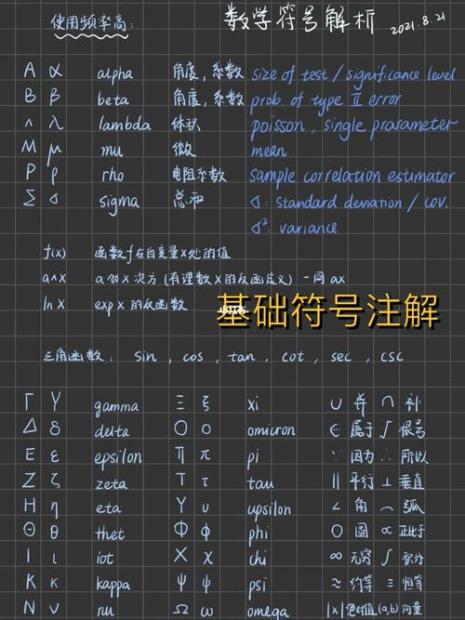 使用频率高: 数学符号解析 2021.8.21
Α α alpha 角度,系数 size of test / significance level
Β β beta 角度,系数 prob. of type II error
Λ λ lambda 体积 poisson, single prarameter
Μ μ mu 微 mean
Ρ ρ rho 电阻系数 sample correlation estimator
Σ σ sigma 总和 σ: standard deviation / cov.
σ²: variance
f(x) 函数f在自变量x处的值
a∧x a的x次方 (有理数x的反函定义) 一同 ax
ln x exp x 的反函数
基础符号注解
三角函数: sin, cos, tan, cot, sec, csc
Γ γ gamma Ξ ξ xi ∪ 并 ∩ 补
Δ δ delta Ο ο omicron ∈ 属于 ∫ 根号
Ε ε epsilon Π π pi ∵ 因为 ∴ 所以
Ζ ζ zeta Τ τ tau ∥ 平行 ⊥ 垂直
Η η eta Υ υ upsilon ∠ 角 ⌒ 弧
Θ θ thet Φ φ phi ○ 圆 ∝ 正比于
Ι ι iot Χ χ chi ∞ 无穷 ∫ 积分
Κ κ kappa Ψ ψ psi ≈ 约等 ≡ 恒等
Ν ν nu Ω ω omega |x| 绝对值 (a,b) 向量